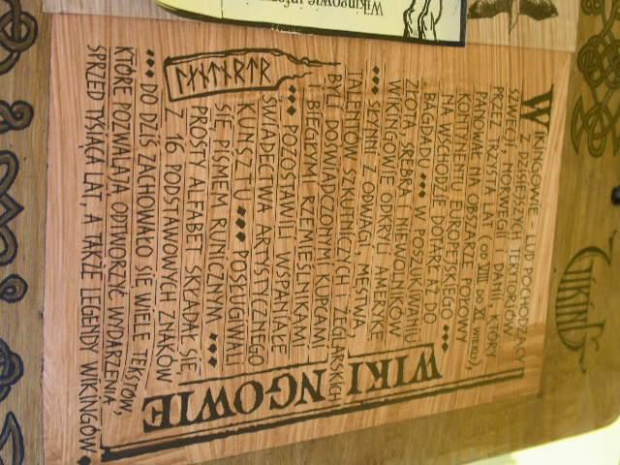 WIKINGOWIE
WIKINGOWIE – LUD POCHODZĄCY
Z DZISIEJSZYCH TERYTORIÓW
SZWECJI, NORWEGII I DANII, KTÓRY
PRZEZ TRZYSTA LAT (OD VIII DO XI WIEKU),
PANOWAŁ NA OBSZARZE POŁOWY
KONTYNENTU EUROPEJSKIEGO ♦♦♦
NA WSCHODZIE DOTARŁ AŻ DO
BAGDADU ♦♦♦ W POSZUKIWANIU
ZŁOTA, SREBRA I NIEWOLNIKÓW
WIKINGOWIE ODKRYLI AMERYKĘ
♦♦♦ SŁYNNI Z ODWAGI, MĘSTWA,
TALENTÓW SZKUTNICZYCH I ŻEGLARSKICH
BYLI DOŚWIADCZONYMI KUPCAMI
I BIEGŁYM RZEMIEŚLNIKAMI
♦♦♦ POZOSTAWILI WSPANIAŁE
ŚWIADECTWA ARTYSTYCZNEGO
KUNSZTU ♦♦♦ POSŁUGIWALI
SIĘ PISMEM RUNICZNYM ♦♦♦
PROSTY ALFABET SKŁADAŁ SIĘ
Z 16 PODSTAWOWYCH ZNAKÓW
♦♦♦ DO DZIŚ ZACHOWAŁO SIĘ WIELE TEKSTÓW,
KTÓRE POZWALAJĄ ODTWORZYĆ WYDARZENIA
SPRZED TYSIĄCA LAT, A TAKŻE LEGENDY WIKINGÓW. ♦
Wikingowie